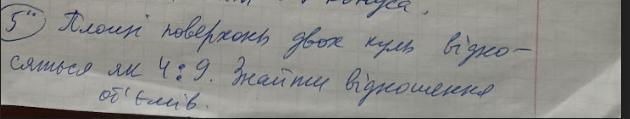 5" Площі поверхонь двох куль відно-
сяться як 4:9. Знайти відношення
об'ємів.